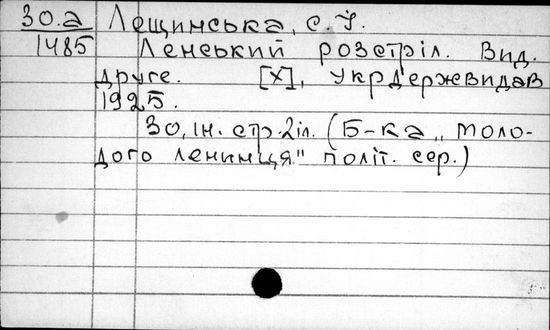 30.а Лещинська, С. І.
1485 Ленський розстріл. Вид.
друге. [Х], Укрдержвидав
1925.
30, ін. стр. 2іл. (Б-ка „Моло-
дого ленинця" політ. сер.)